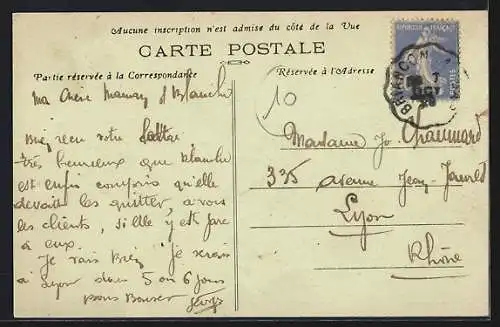 Aucune inscription n'est admise du côté de la Vue
CARTE POSTALE
Partie réservée à la Correspondance
Réservée à l'Adresse
REPUBLIQUE FRANÇAISE
POSTES
BRIANÇON
7
OCT
10
Ma Chère Maman et Blanche
Bien reçu votre lettre
très heureux que Blanche
est enfin compris qu'elle
devait les quitter, a vous
les clients, si elle y est
a eux.
Je vais bien je serais
à Lyon dans 5 ou 6 jours
bons Baisers
Madame Jo.
335 avenue Jean-Jaurès
Lyon
Rhône